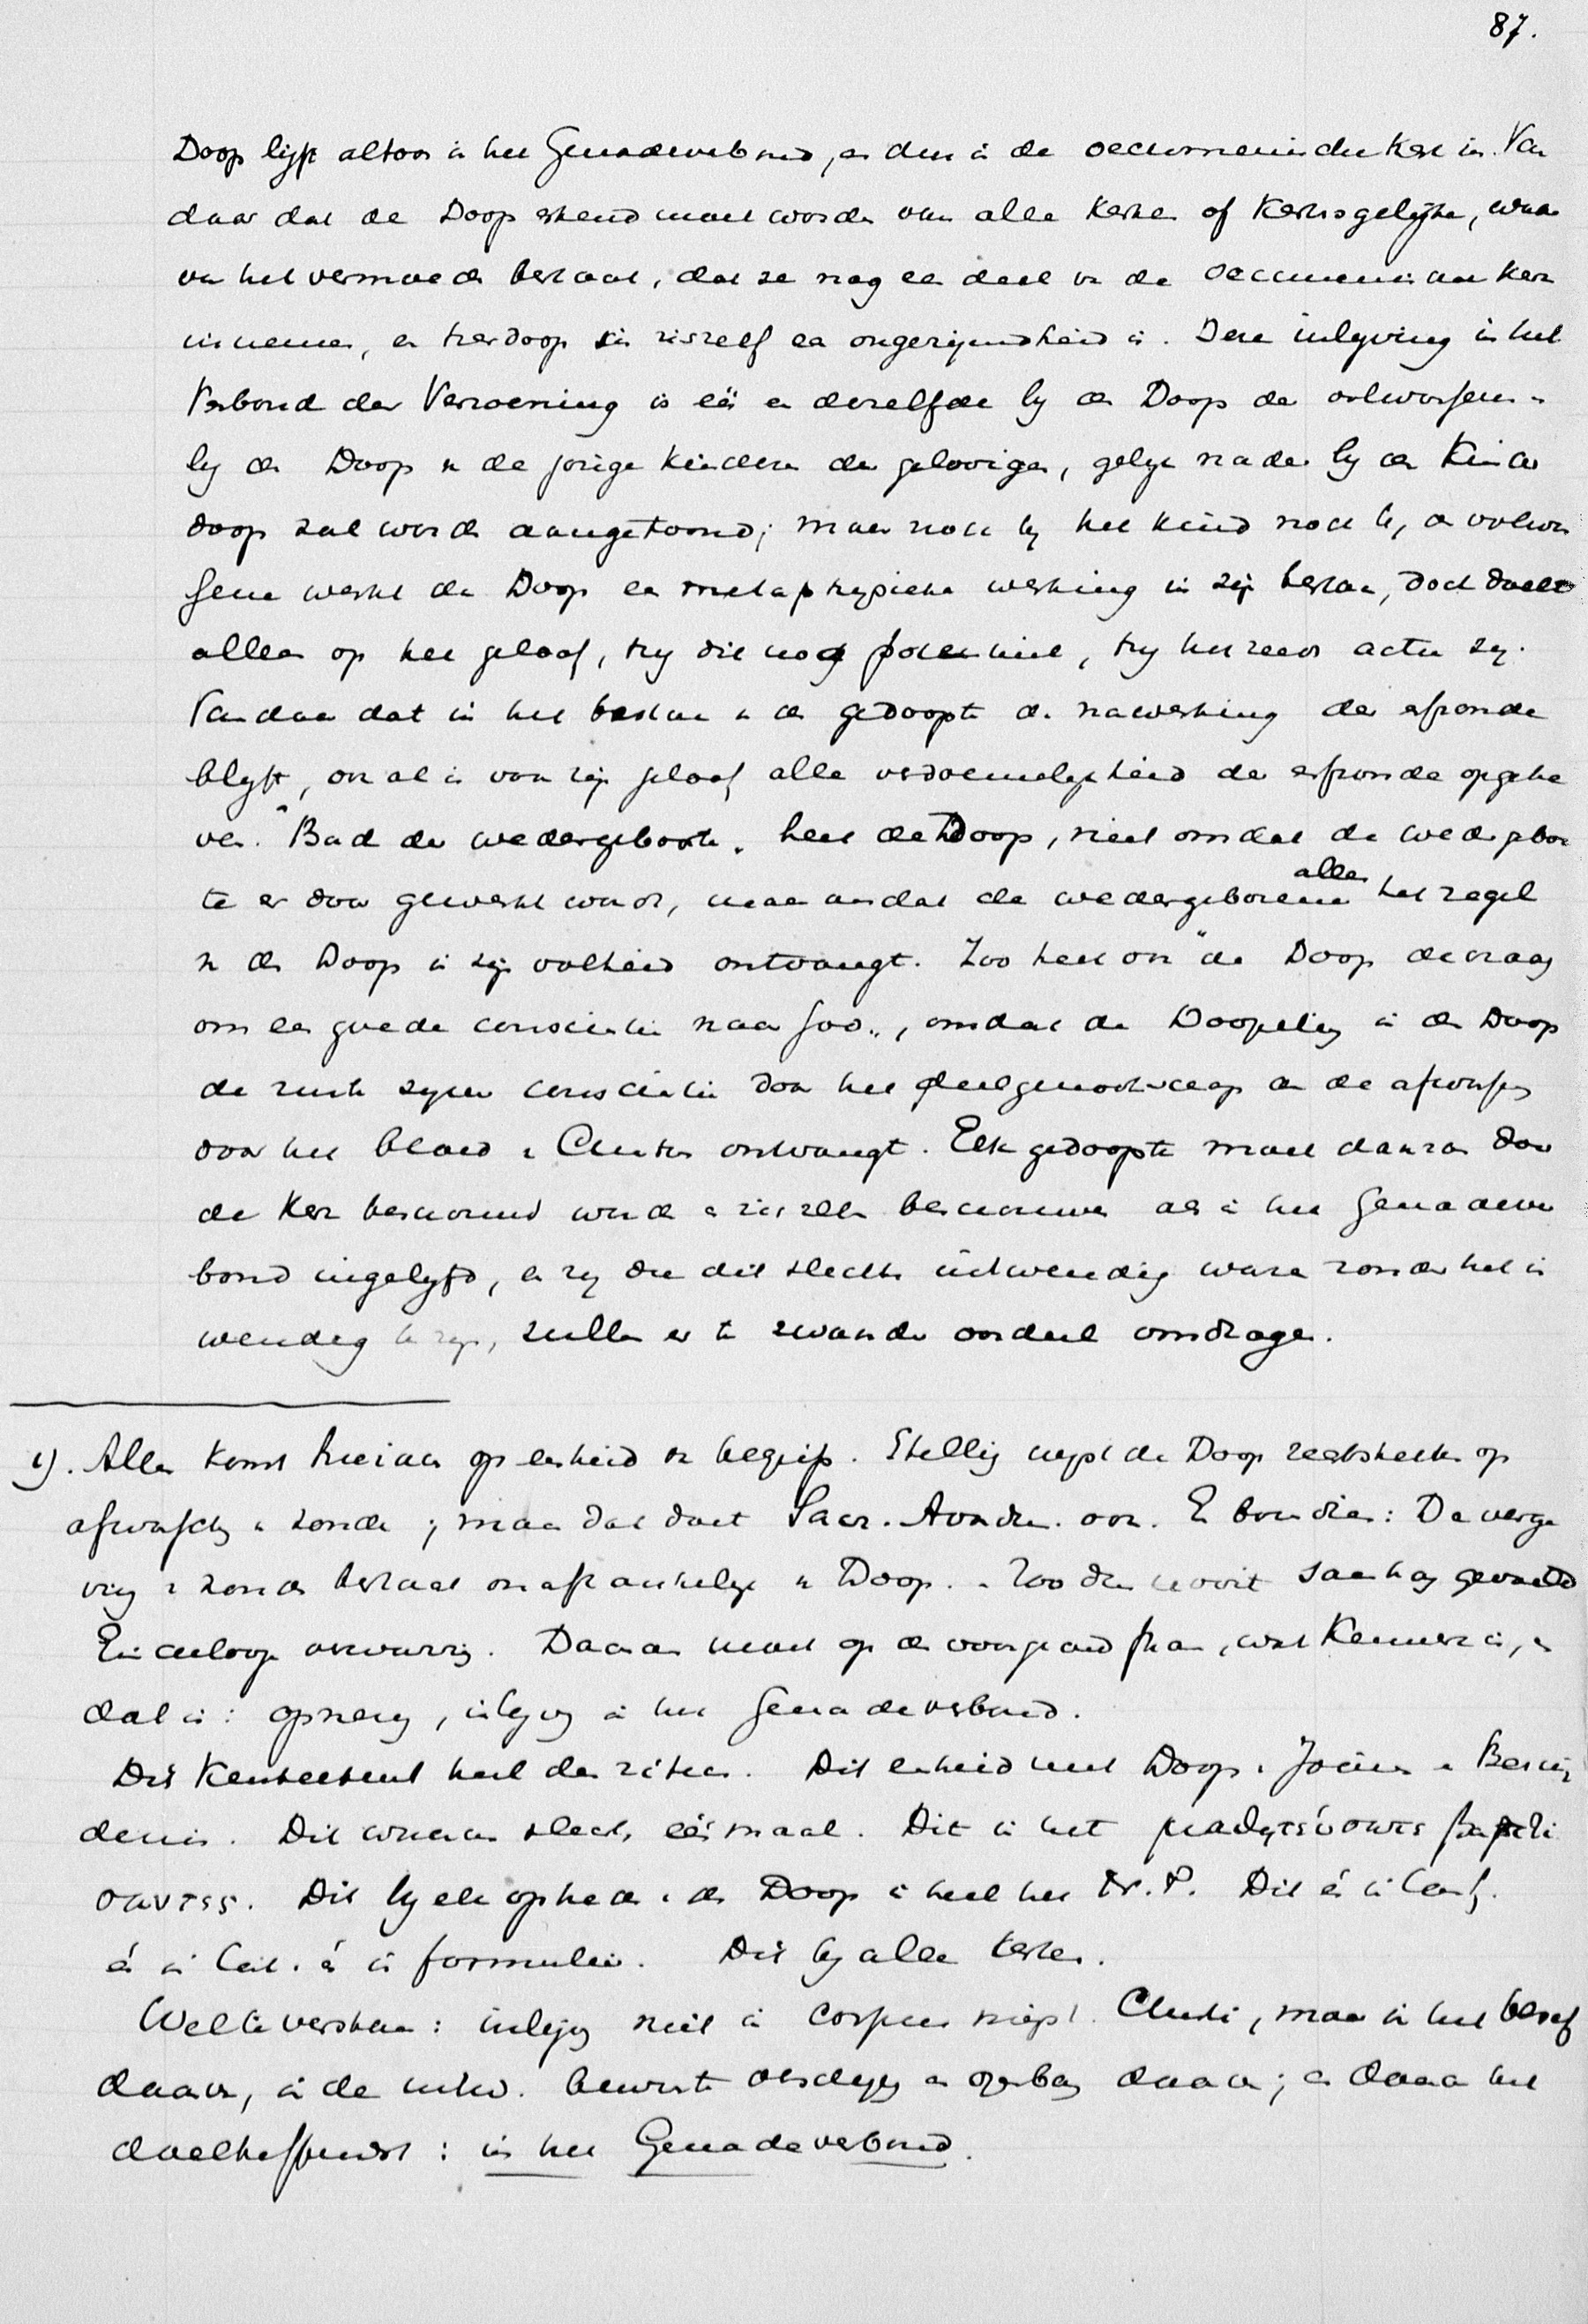 87.
Doop lijft altoos in het Genadeverbond, en dus in de oecumenische Kerk in. Van
daar dat de Doop erkend moet worden van alle Kerken of Kerksgelijke, waar
van het vermoeden bestaat, dat ze nog een deel van de oecumenische Kerk
innemen, en herdoop in zichzelf een ongerijmdheid is. Deze inlyving in het
Verbond der Verzoening is één en dezelfde by den Doop der volwassenen en
by den Doop van de jonge kinderen der geloovigen, gelyk nader by den Kinder
doop zal worden aangetoond; maar noch by het kind noch by den volwas
sene werkt de Doop een metaphysieke werking in zijn bestaan, doch doelt
alleen op het geloof, hy dit nog potentieel, hy het reeds actu zy.
Vandaar dat in het bestaan van den gedoopte de nawerking der erfzonde
blyft, ook al is voor zijn geloof alle verdoemelykheid der erfzonde opgehe
ven. "Bad der wedergeboorte" heet de Doop, niet omdat de wedergeboor
te er door gewerkt wordt, maar omdat de wedergeborene alleen het zegel
van den Doop in zijn volheid ontvangt. Zoo heet ook "de Doop de vraag
om een goede conscientie naar God", omdat de Doopeling in den Doop
de rust zyner conscientie door het deelgenootschap aan de afwassching
door het bloed van Christus ontvangt. Elk gedoopte moet daarom door
de Kerk beschouwd worden en zichzelf beschouwen als in het Genadever
bond ingelyfd, en zy die dit slechts uitwendig waren zonder het in
wendig te zyn, zullen er te zwaarder oordeel om dragen.
1). Alles komt hierin op eenheid van begrip. Stellig wyst de Doop rechtstreeks op
afwassching van zonde; maar dat doet Sacr. Avondm. ook. En bovendien: De verge
ving van zonden bestaat onafhankelyk van Doop.
Eindelooze verwarring. Daarom moet op den voorgrond staan, wat Kenmerk is, en
dat is: opneming, inlyving in het Genadeverbond.
Dit Kenteekent heel den ritus. Dit eenheid met Doop van Joannes en Besny
denis. Dit waarom slechts éénmaal. Dit in het μαθητεύσατε βαπτί
σαντες. Dit by elk optreden van den Doop in heel het N.T. Dit én in Conf.
én in Cat. én in formulier. Dit by alle kerken.
Wel te verstaan: inlyving niet in corpus myst. Christi, maar in het besef
daarvan, in de uitw. bewuste en openbaring daarvan; en daarom het
doeltreffendst: in het Genadeverbond.